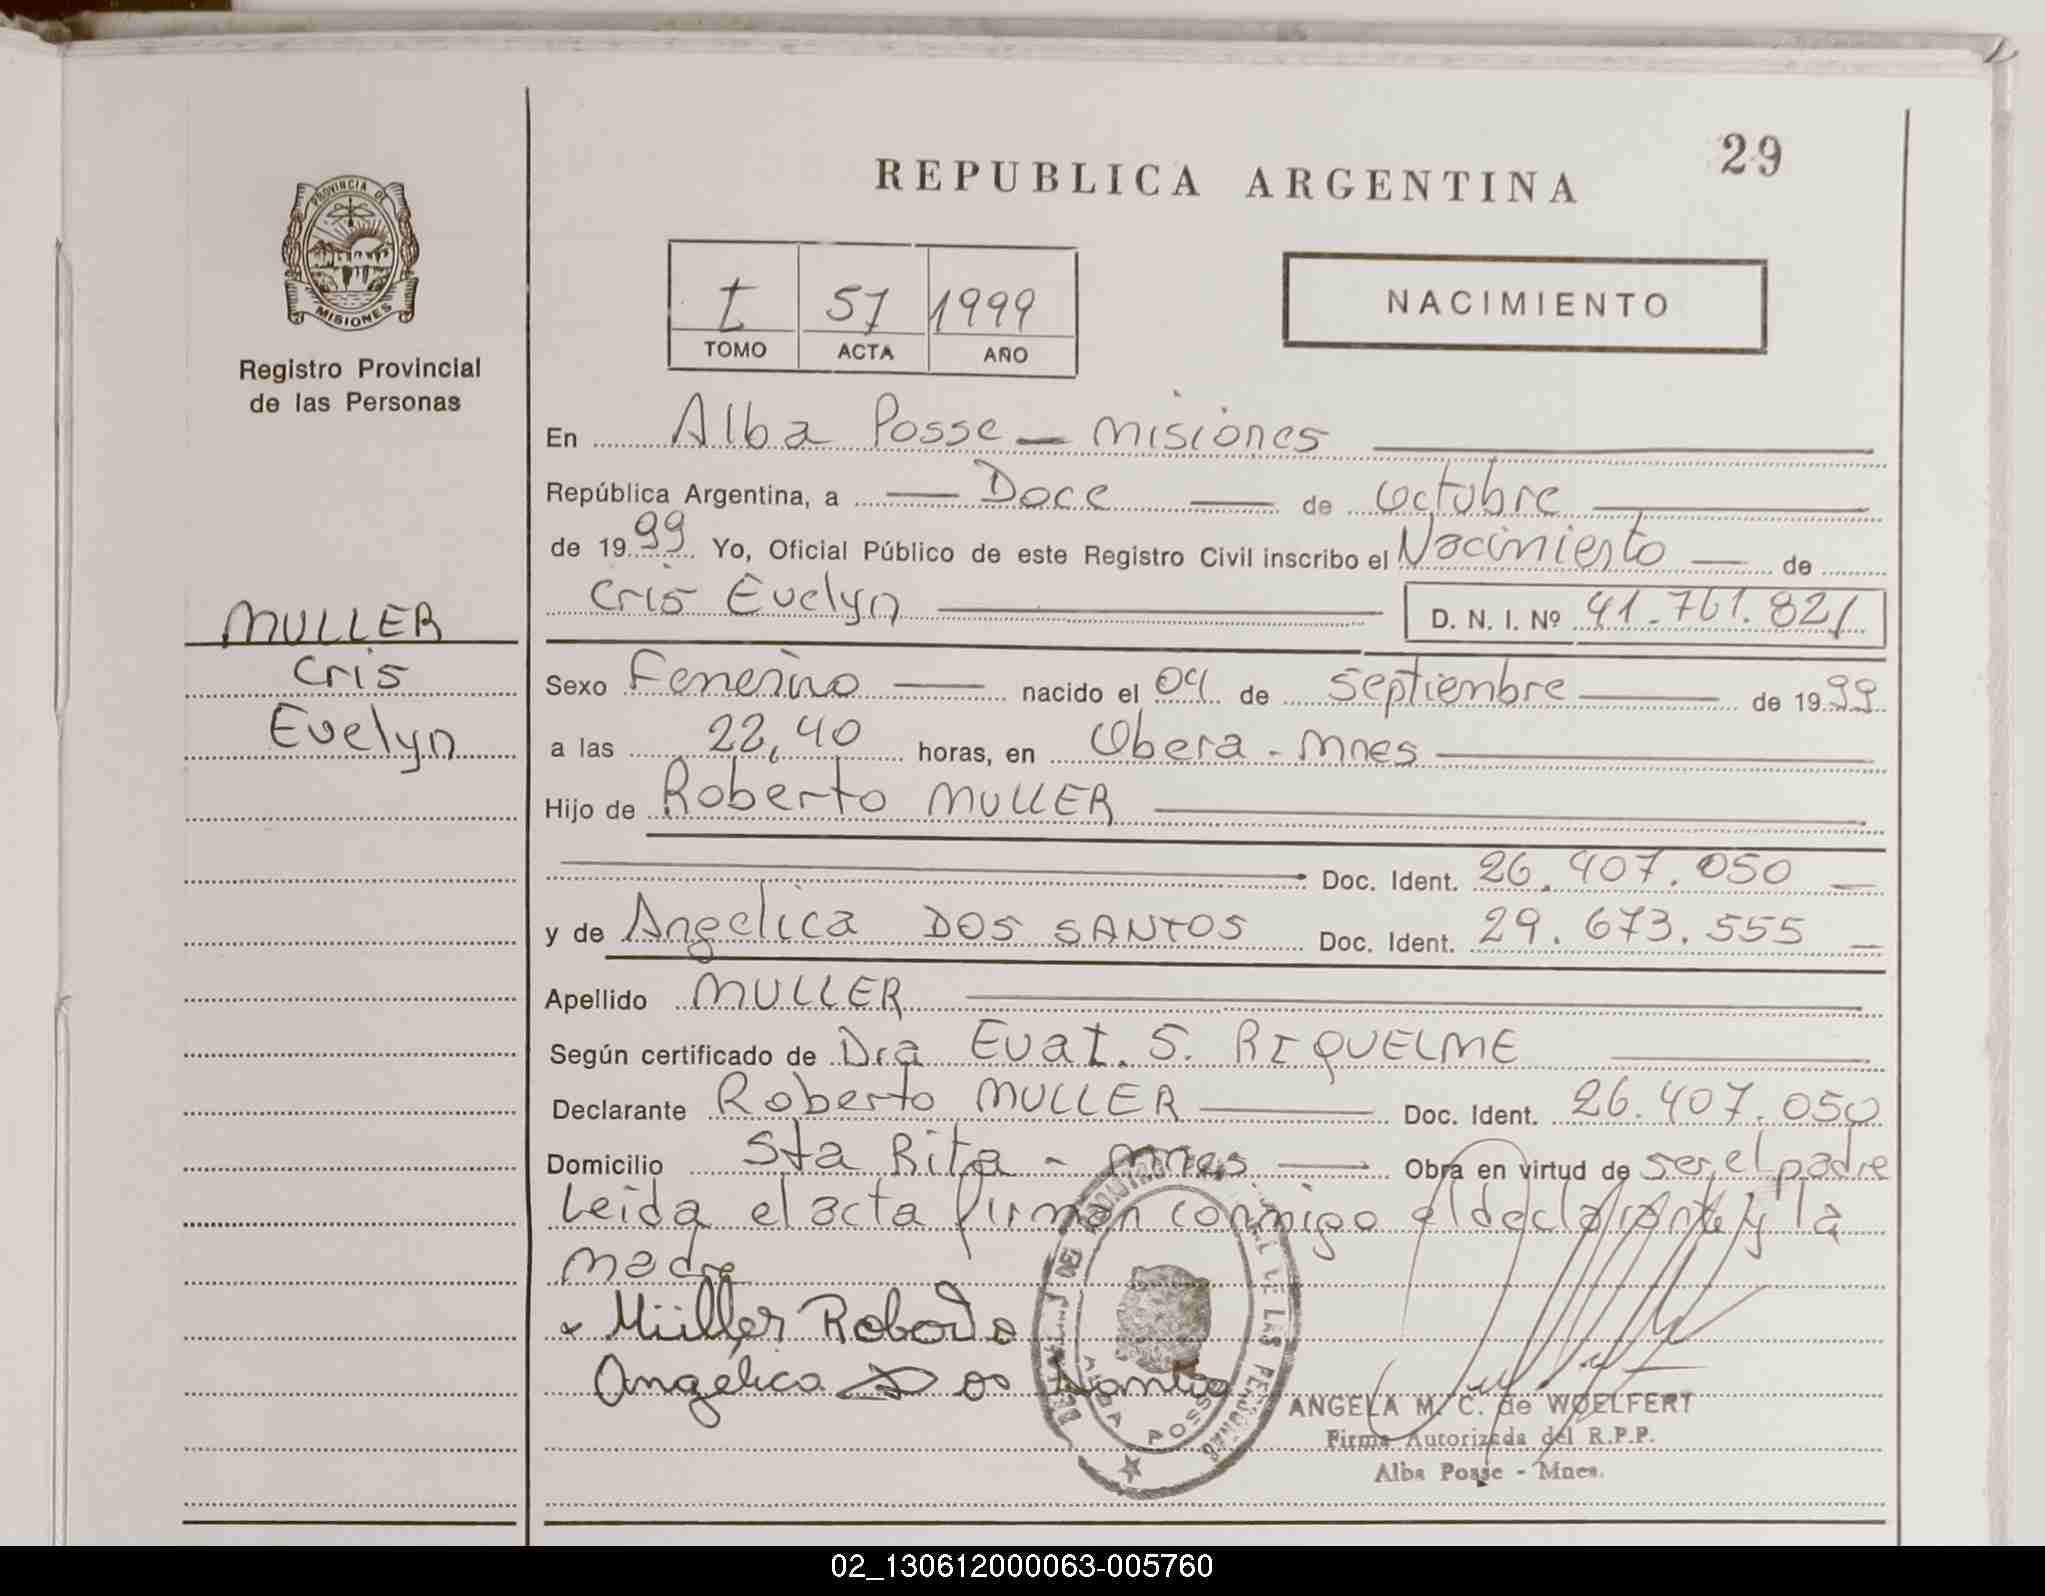 29
REPUBLICA ARGENTINA
PROVINCIA DE
MISIONES
Registro Provincial
de las Personas
t 57 1999
TOMO ACTA AÑO
NACIMIENTO
En Alba Posse - Misiones
República Argentina, a Doce de Octubre
de 1999 Yo, Oficial Público de este Registro Civil inscribo el Nacimiento de
Cris Evelyn D. N. I. Nº 41.761.821
MULLER
Cris
Evelyn
Sexo Femenino nacido el 04 de Septiembre de 1999
a las 22,40 horas, en Obera - Mnes
Hijo de Roberto MULLER
Doc. Ident. 26.407.050
y de Angelica DOS SANTOS Doc. Ident. 29.673.555
Apellido MULLER
Según certificado de Dra Evat. S. RIQUELME
Declarante Roberto MULLER Doc. Ident. 26.407.050
Domicilio Sta Rita - Mnes Obra en virtud de ser el padre
Leida el acta firman conmigo el declarante y la
madre
Müller Roberto
Angélica Dos Santos
DE LAS PERSONAS
ALBA POSSE
ANGELA M. C. de WOELFERT
Firma Autorizada del R.P.P.
Alba Posse - Mnes.
02_130612000063-005760